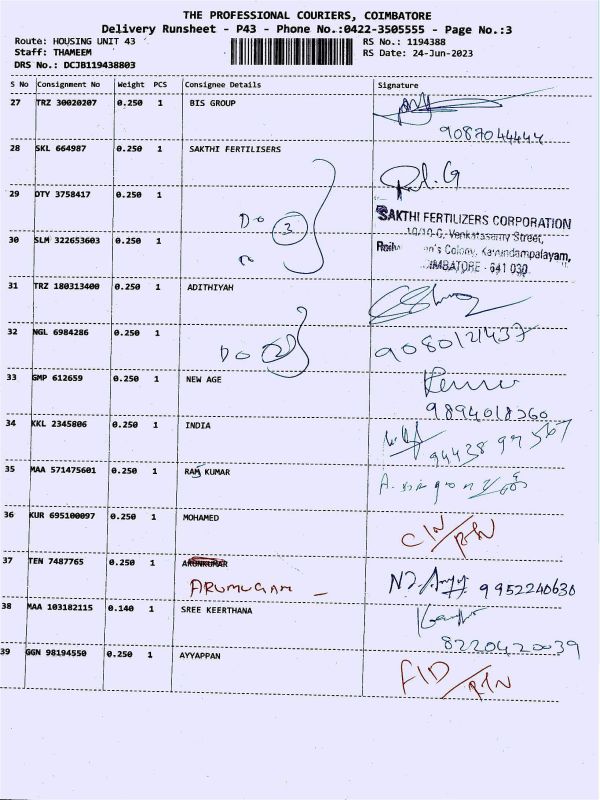 THE PROFESSIONAL COURIERS, COIMBATORE
Delivery Runsheet - P43 - Phone No.:0422-3505555 - Page No.:3
Route: HOUSING UNIT 43 RS No.: 1194388
Staff: THAMEEM RS Date: 24-Jun-2023
DRS No.: DCJB119438803
S No Consignment No Weight PCS Consignee Details Signature
27 TRZ 30020207 0.250 1 BIS GROUP
9087044444
28 SKL 664987 0.250 1 SAKTHI FERTILISERS
29 DTY 3758417 0.250 1
SAKTHI FERTILIZERS CORPORATION
Do 3
10/10-C, Venkatasamy Street,
30 SLM 322653603 0.250 1
Colony, Kavundampalayam,
COIMBATORE - 641 030.
31 TRZ 180313400 0.250 1 ADITHIYAH
32 NGL 6984286 0.250 1
Do 2 9080121437
33 GMP 612659 0.250 1 NEW AGE
9894018260
34 KKL 2345806 0.250 1 INDIA
9443897567
35 MAA 571475601 0.250 1 RAM KUMAR
36 KUR 695100097 0.250 1 MOHAMED
CIN/RTN
37 TEN 7487765 0.250 1 ARUNKUMAR
ARUMUGAM - 9952240630
38 MAA 103182115 0.140 1 SREE KEERTHANA
8220420039
39 GGN 98194550 0.250 1 AYYAPPAN
FID/RTN